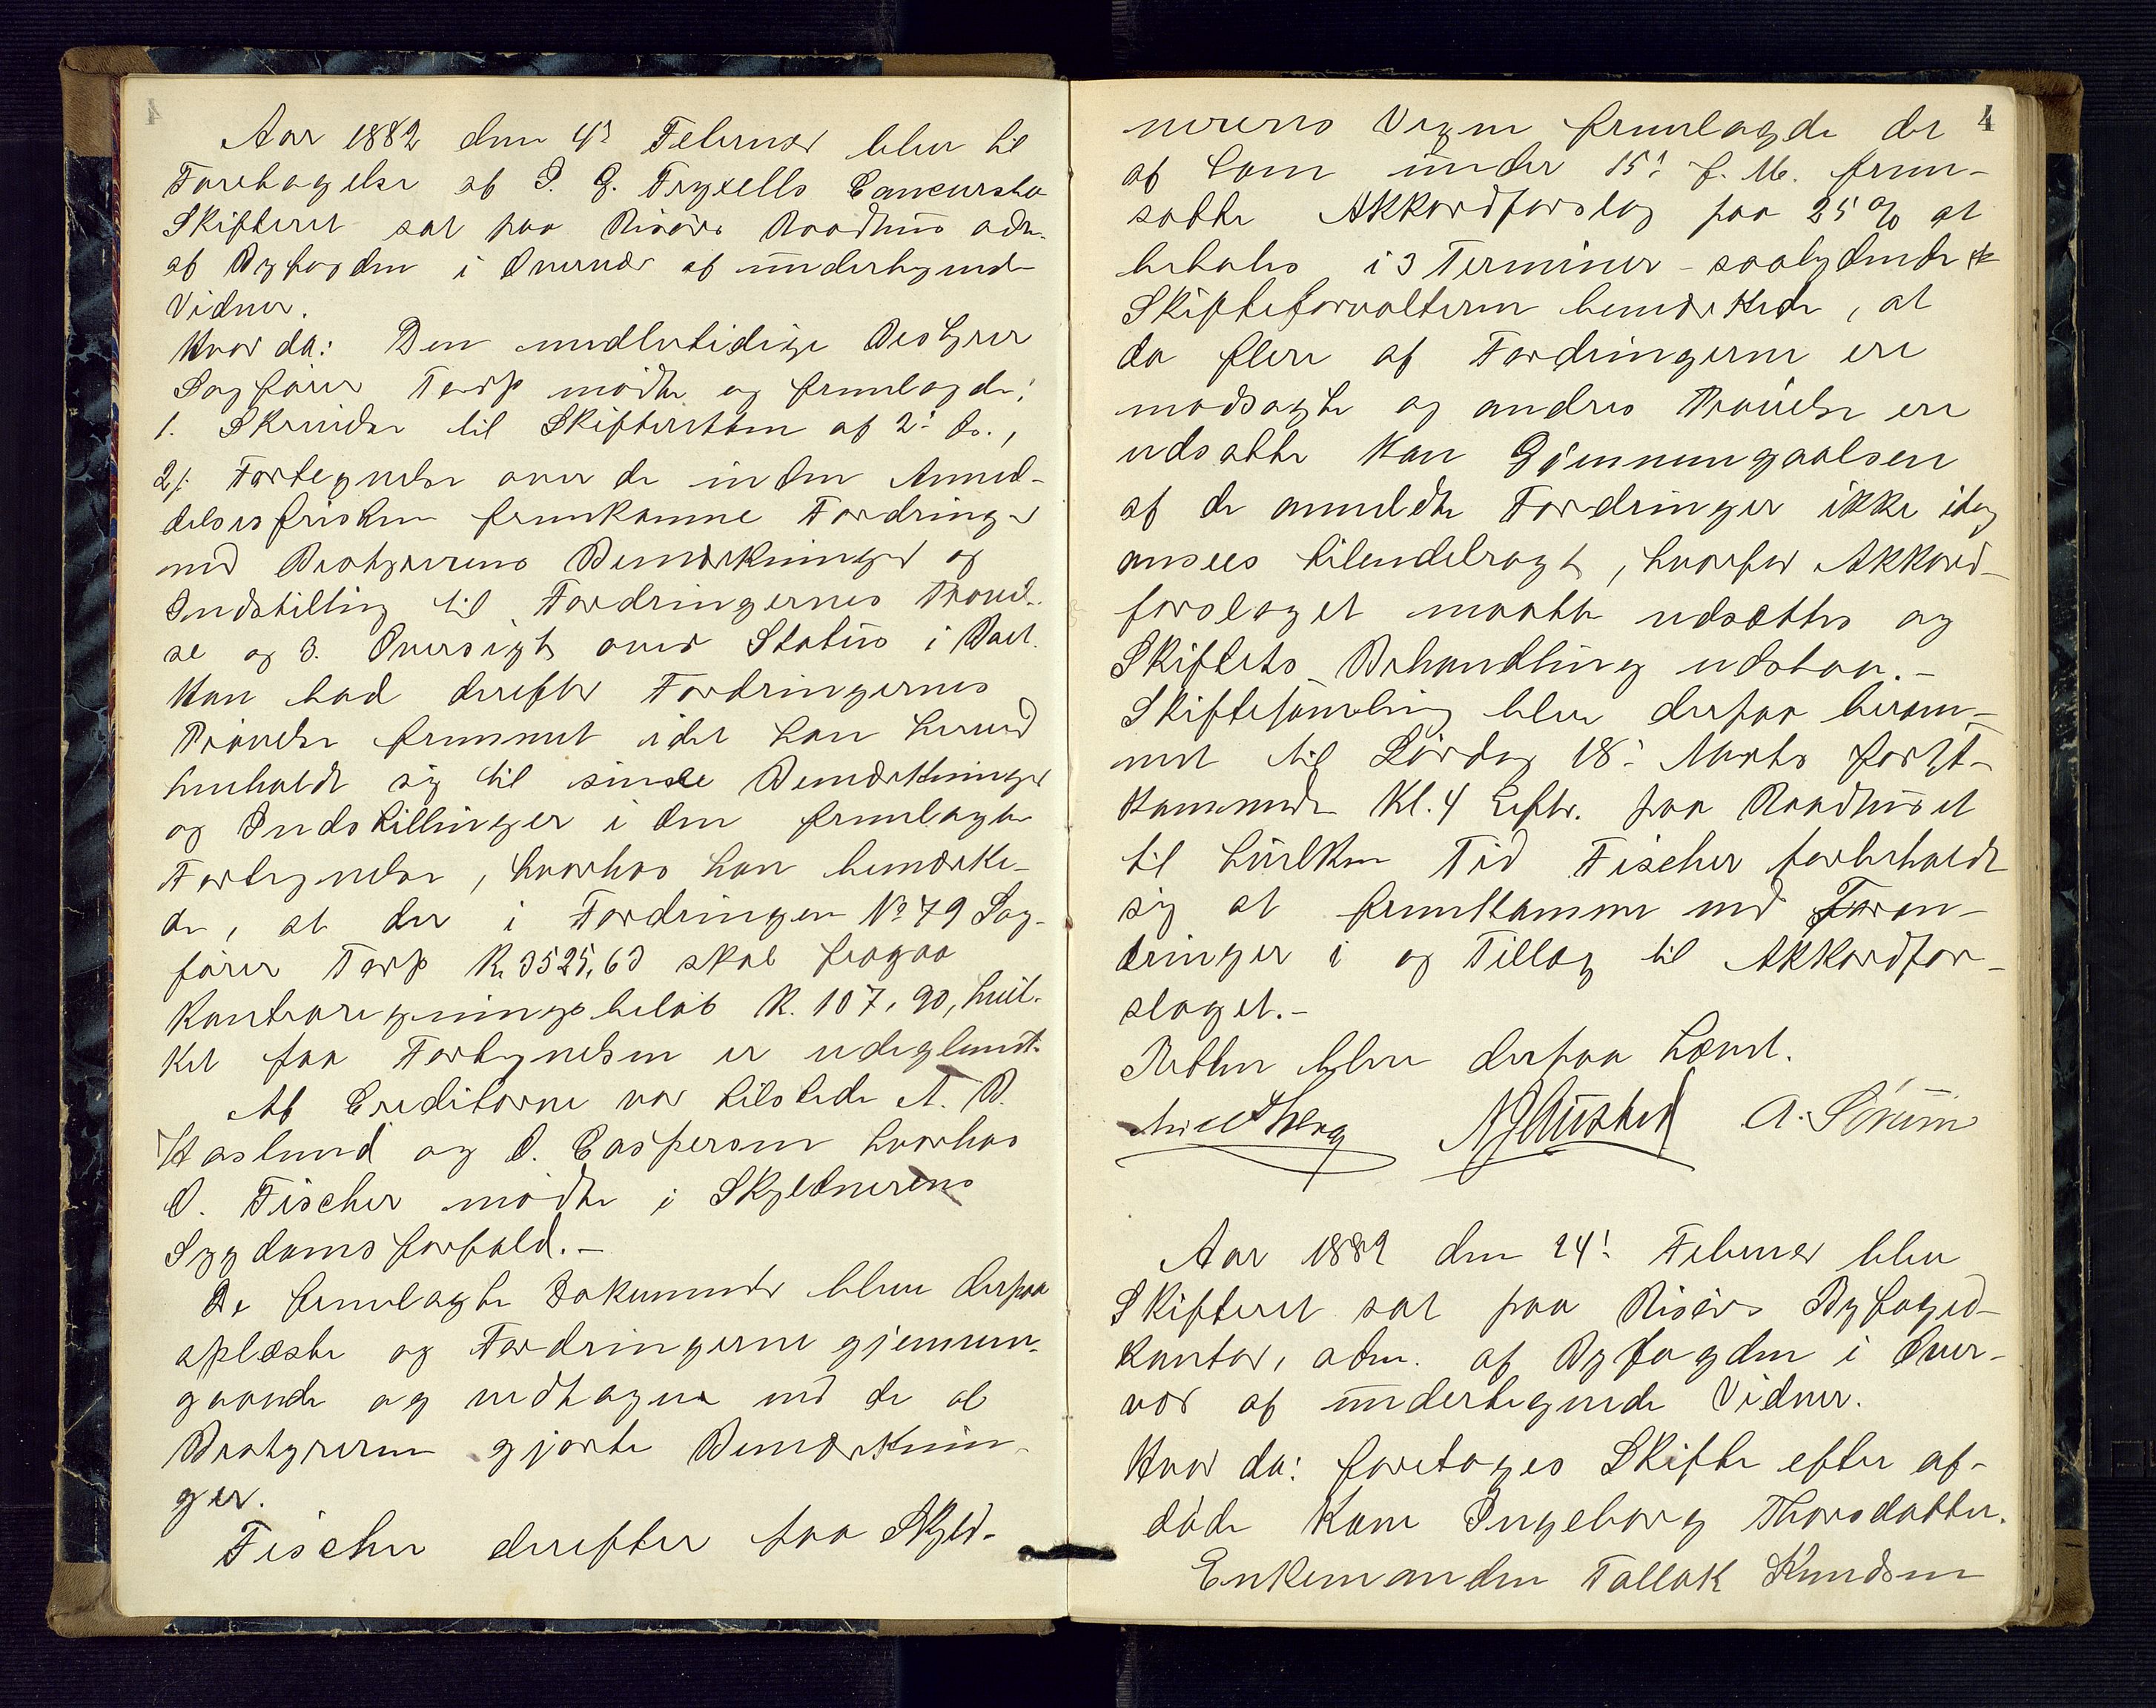 Aar 1882 den 4' Februar blev til
Foretagelse af P. G. Fryxells Concursbo
Skifteret sat paa Risørs Raadhus adm.
af Byfogden i Overvær af undertegnede
Vidner.
Hvor da: Den midlertidige Bestyrer
Sagfører Tarp mødte og fremlagde:
1. Skrivelse til Skifteretten af 2' ds.,
2/. Fortegnelse over de inden Anmel-
delsesfristen fremkomne Fordringer
med Bestyrerens Bemærkninger og
Indstilling til Fordringernes Prøvel-
se og 3. Oversigt over Status i Boet.
Han bad derefter Fordringernes
Prøvelse fremmet idet han herved
henholdt sig til sine Bemærkninger
og Indstillinger i den fremlagte
Fortegnelse, hvorhos han bemærke-
de, at der i Fordringen No 79 Sag-
fører Tarp Kr 3525,63 skal fragaa
Kontraregningsbeløb K. 107,90, hvil-
ket paa Fortegnelsen er udeglemt.
Af Creditorne var tilstede A. B.
Haslund og O. Caspersen hvorhos
O. Fischer mødte i Skyldnerens
Sygdomsforfald. -
De fremlagte Dokumenter blev derpaa
oplæste og Fordringerne gjennem-
gaaede og vedtagne med de af
Bestyreren gjorte Bemærknin-
ger.
Fischer derefter paa Skyld-
4
nerens Vegne fremlagde det
af ham under 15' f. M. frem-
satte Akkordforslag paa 25 % at
betales i 3 Terminer - saalydende
Skifteforvalteren bemærkede, at
da flere af Fordringerne ere
modsagte og andres Prøvelse ere
udsatte kan Gjennemgaaelsen
af de anmeldte Fordringer ikke idag
ansees tilendebragt, hvorfor Akkord-
forslaget maatte udsættes og
Skiftets Behandling udstaa. -
Skiftesamling blev derpaa beram-
met til Lørdag 18' Marts førstt-
kommende Kl. 4 Eftr. paa Raadhuset
til hvilken Tid Fischer forbeholdt
sig at fremkomme med Foran-
dringer i og Tillæg til Akkordfor-
slaget. -
Retten blev derpaa hævet.
A. Sørum
Aar 1882 den 24' Februar blev
Skifteret sat paa Risørs Byfoged-
kontor, adm. af Byfogden i Over-
vær af undertegnede Vidner.
Hvor da: foretoges Skifte efter af-
døde Kone Ingeborg Thorsdatter.
Enkemanden Tallak Knudsen